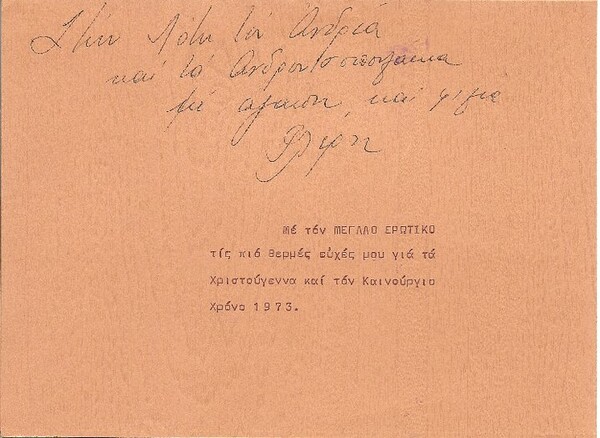 Στην Λότη τον Ανδρέα
και τα
με αγάπη, και φιλιά
Μέ τόν ΜΕΓΑΛΟ ΕΡΩΤΙΚΟ
τίς πιό θερμές εὐχές μου γιά τά
Χριστούγεννα καί τόν Καινούργιο
Χρόνο 1973.